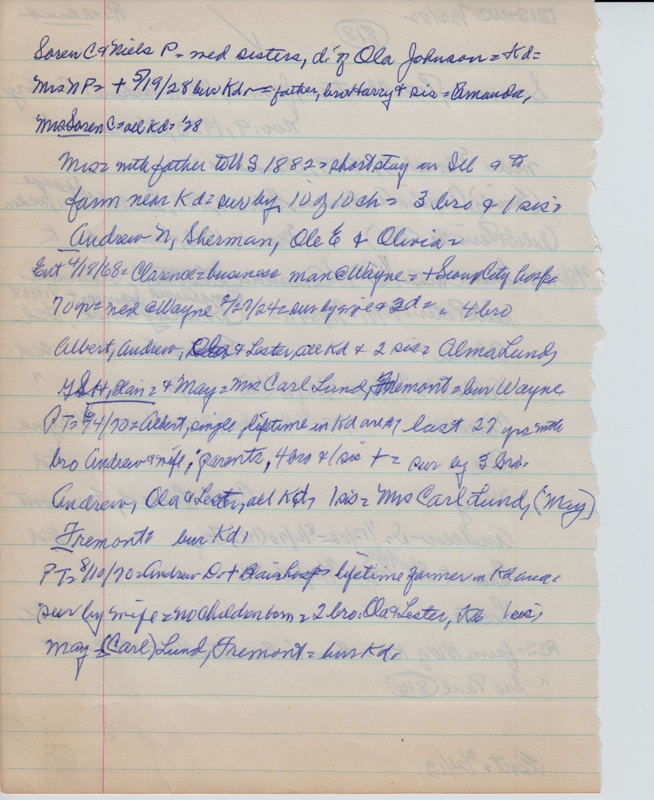 Soren C & Niels P = med sisters, d. of Ola Johnson = Kd =
Mrs N P = + 5/19/28 bur Kd = father, bro Harry & sis = Amanda,
Mrs Soren C = all Kd = '28
Mrs = with father to U S 1882 = short stay in Ill & to
farm near Kd = sur by 10 of 10 ch = 3 bro & 1 sis =
Andrew N, Sherman, Ole E & Olivia =
Ent 4/19/68 = Clarence = business man @ Wayne = + Sioux City hosp =
70 yr = med @ Wayne 2/27/24 = sur by wife & 2 d = " 4 bro
Albert, Andrew, & Lester, all Kd & 2 sis = Alma Lund,
& May = Mrs Carl Lund, Fremont = bur Wayne
PT = 6/4/70 = Albert, single, lifetime in Kd area, last 27 yrs with
bro Andrew & wife, parents, 4 bro & 1 sis + = sur by 3 bro =
Andrew, Ola & Lester, all Kd, 1 sis = Mrs Carl Lund, (May)
Fremont = bur Kd,
PT = 8/10/70 = Andrew D = + Blair hosp = lifetime farmer in Kd area =
sur by wife = no children born = 2 bro: Ola & Lester, Kd 1 sis,
May = (Carl) Lund, Fremont = bur Kd,